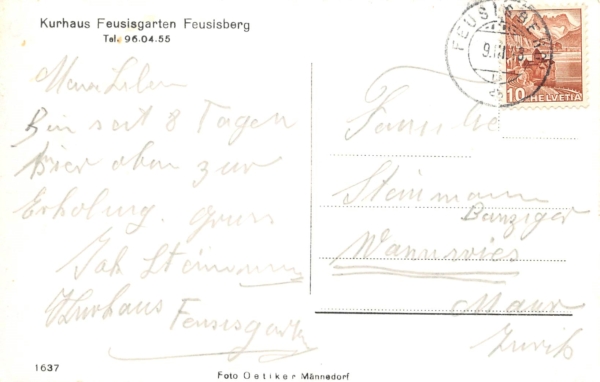 Kurhaus Feusisgarten Feusisberg
Tel. 96.04.55
Meine Lieben
Bin seit 8 Tagen
hier oben zur
Erholung. Gruss
Joh Steinmann
Kurhaus
Feusisgarten
1637
Foto Oetiker Männedorf
FEUSISBERG
9.III.
10 HELVETIA
Familie
Steinmann
Danziger
Wannwies
Maur
Zürich